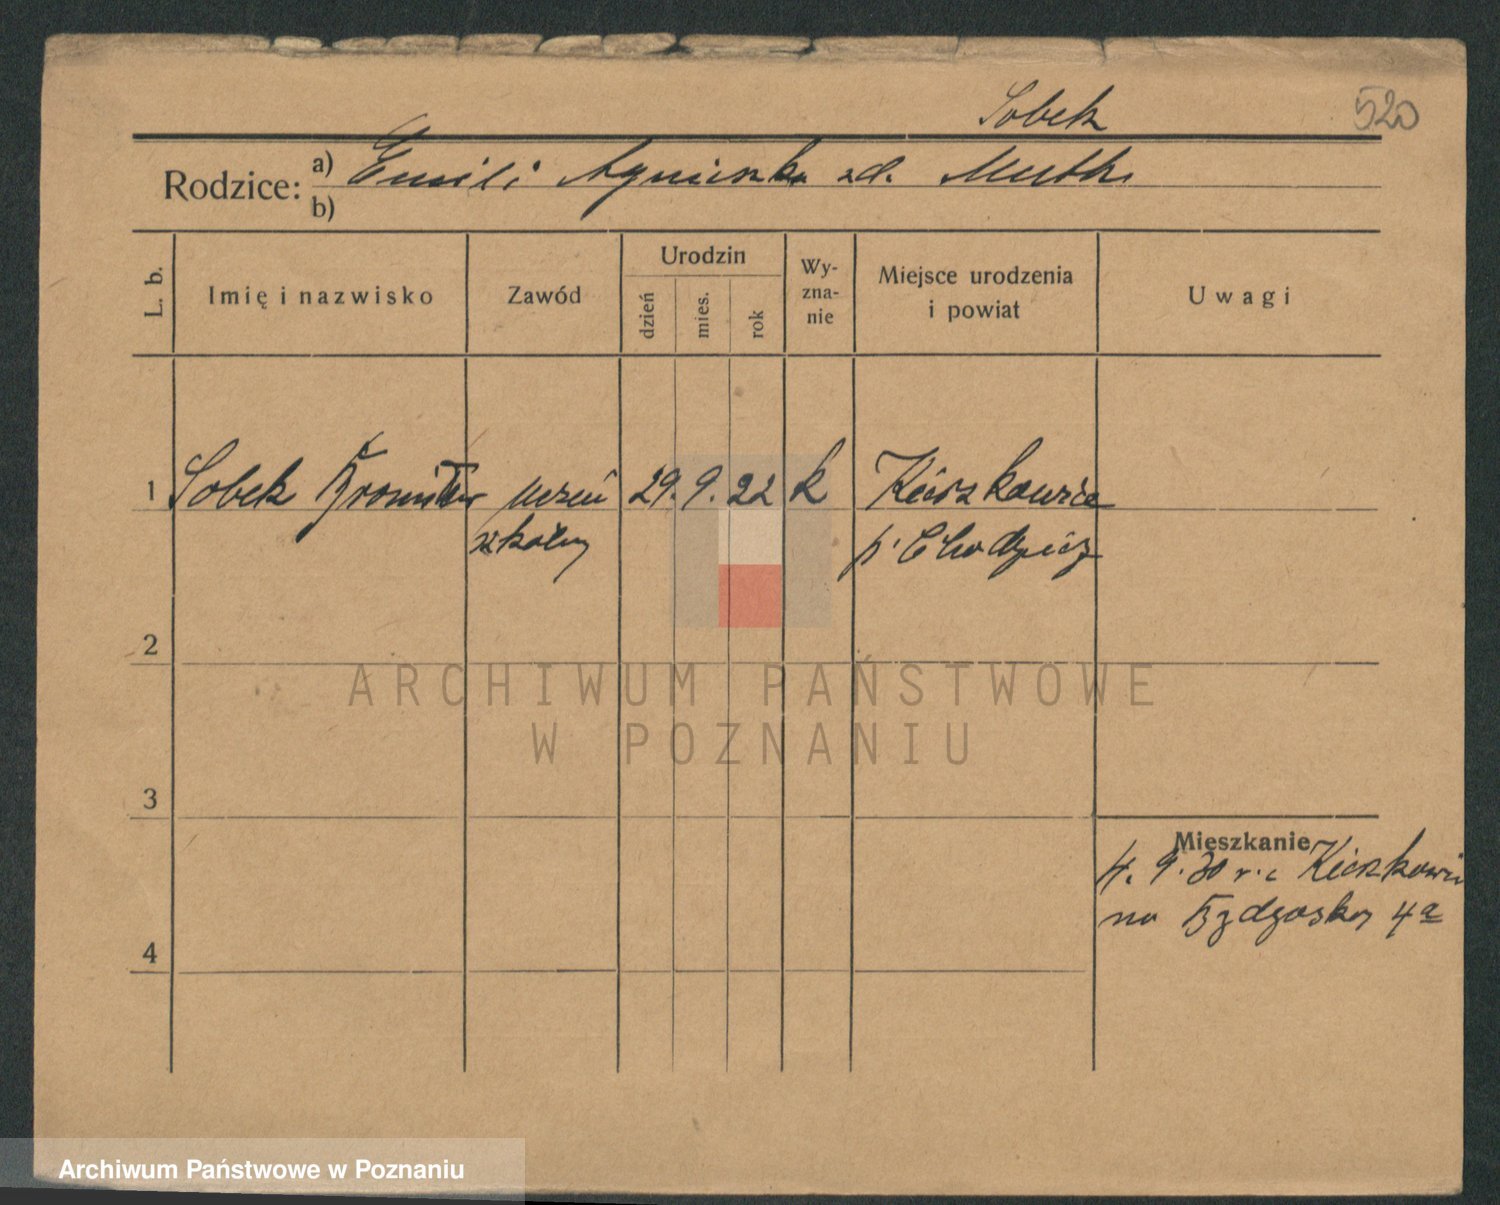 Sobek
520
Rodzice: a) Emil i Agnieszka zd. Muth
b)
L. b.
Imię i nazwisko
Zawód
Urodzin
dzień
mies.
rok
Wy-
zna-
nie
Miejsce urodzenia
i powiat
Uwagi
1 Sobek Bronisław uczeń 29. 9. 22 k
szkolny p. Chodzież
2
3
4
Mieszkanie
4. 9. 30 r. z
na Bydgoską 4a
ARCHIWUM PAŃSTWOWE
W POZNANIU
Archiwum Państwowe w Poznaniu